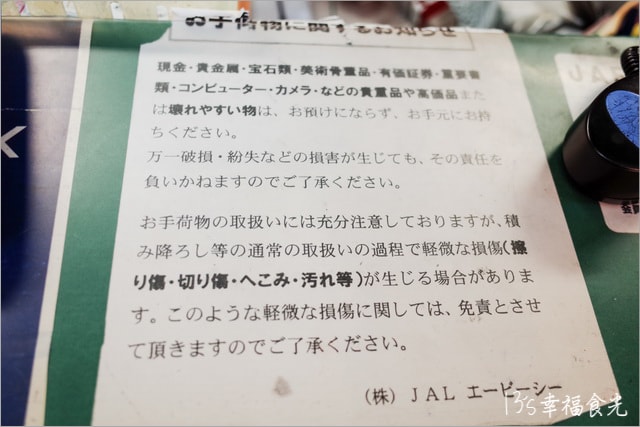 お手荷物に関するお知らせ
現金・貴金属・宝石類・美術骨董品・有価証券・重要書
類・コンピューター・カメラ・などの貴重品や高価品また
は壊れやすい物は、お預けにならず、お手元にお持
ちください。
万一破損・紛失などの損害が生じても、その責任を
負いかねますのでご了承ください。
お手荷物の取扱いには充分注意しておりますが、積
み降ろし等の通常の取扱いの過程で軽微な損傷(擦
り傷・切り傷・へこみ・汚れ等)が生じる場合がありま
す。このような軽微な損傷に関しては、免責とさせ
て頂きますのでご了承ください。
(株) JAL エービーシー
K
JAL
幸福食光